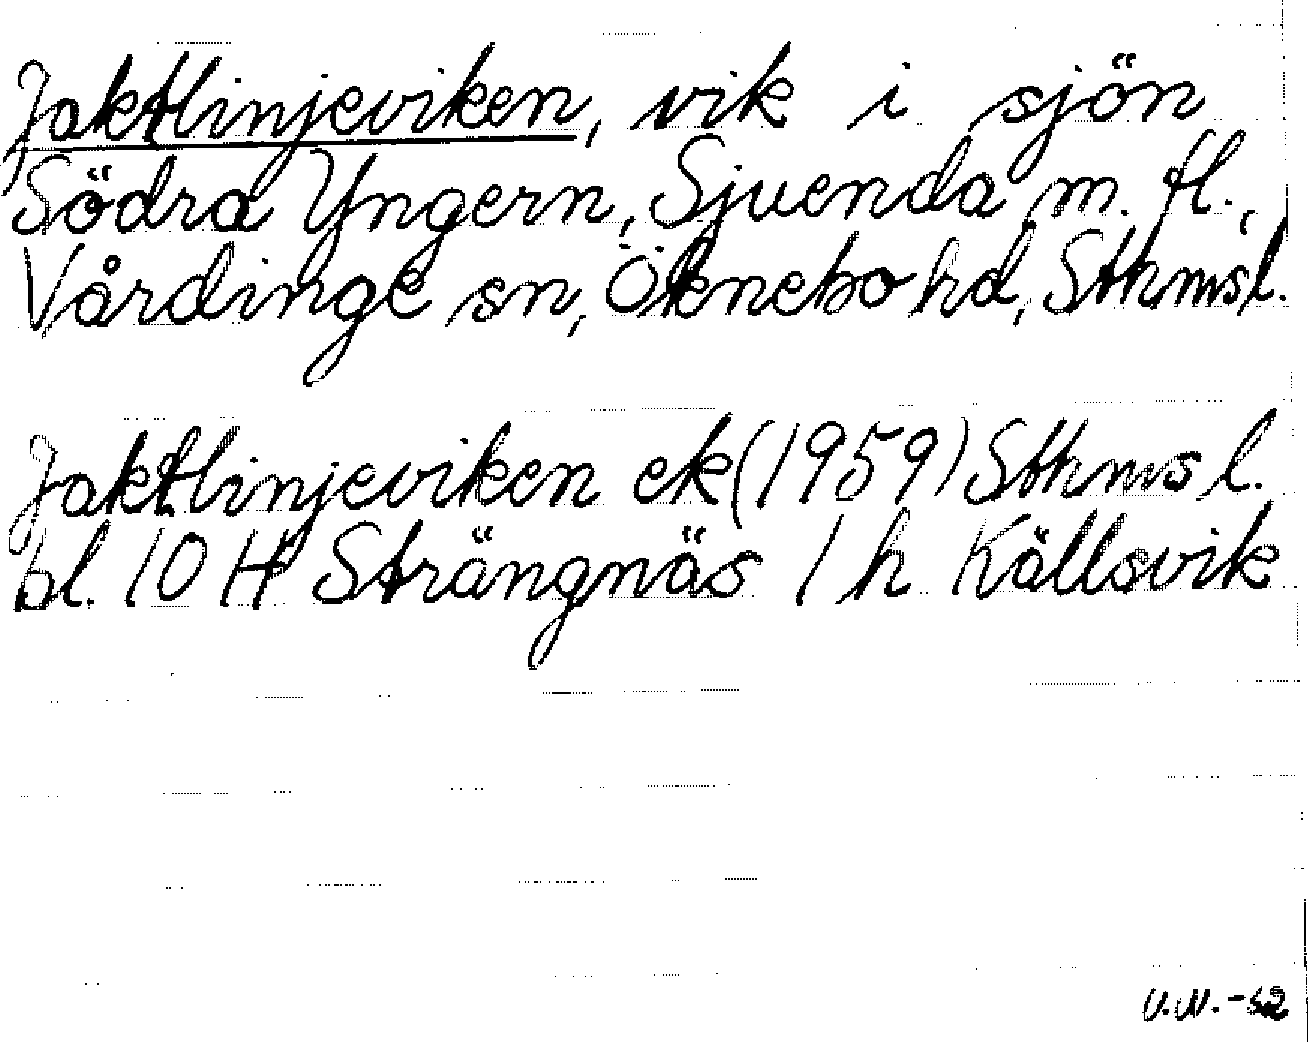 Jaktlinjeviken, vik i sjön
Södra Yngern, Sjuenda m. fl.,
Vårdinge sn, Öknebo hd, Sthmsl.
Jaktlinjeviken ek (1959) Sthms l.
bl. 10 H Strängnäs 1 h Källsvik